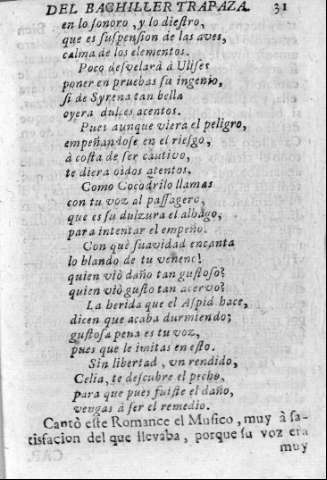 DEL BACHILLER TRAPAZA. 31
en lo sonoro, y lo diestro,
que es suspension de las aves,
calma de los elementos.
Poco desvelarà à Ulises
poner en pruebas su ingenio,
si de Syrena tan bella
oyera dulces acentos.
Pues aunque viera el peligro,
empeñandose en el riesgo,
à costa de ser cautivo,
te diera oidos atentos.
Como Cocodrilo llamas
con tu voz al passagero,
que es su dulzura el alhago,
para intentar el empeño.
Con què suavidad encanta
lo blando de tu venenc!
quien viò daño tan gustoso?
quien viò gusto tan acervo?
La herida que el Aspid hace,
dicen que acaba durmiendo;
gustosa pena es tu voz,
pues que le imitas en esto.
Sin libertad, un rendido,
Celia, te descubre el pecho,
para que pues fuiste el daño,
vengas à ser el remedio.
Cantò este Romance el Musico, muy à sa-
tisfacion del que llevaba, porque su voz era
muy